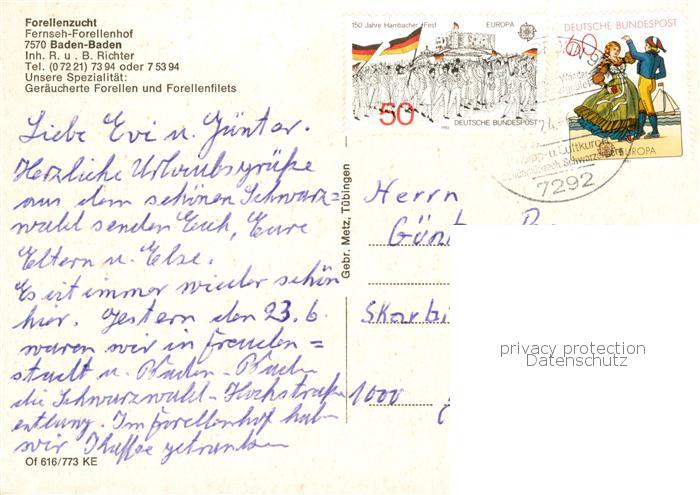 Forellenzucht
Fernseh-Forellenhof
7570 Baden-Baden
Inh. R. u. B. Richter
Tel. (0 72 21) 7 3 94 oder 7 53 94
Unsere Spezialität:
Geräucherte Forellen und Forellenfilets
Liebe Evi u. Günter.
Herzliche Urlaubsgrüße
aus dem schönen Schwarz=
wald senden Euch, Eure
Eltern u. Else.
Es ist immer wieder schön
hier. Gestern den 23. 6.
waren wir in Freuden=
stadt u. Baden-Baden
die Schwarzwald-Hochstraße
entlang. Im Forellenhof haben
wir Kaffee getrunken
Of 616/773 KE
Gebr. Metz, Tübingen
150 Jahre Hambacher Fest
EUROPA
50
DEUTSCHE BUNDESPOST
DEUTSCHE BUNDESPOST
60
EUROPA
u. Luftkurort
7292
Herrn
Günt
Skarbi
1000
privacy protection
Datenschutz